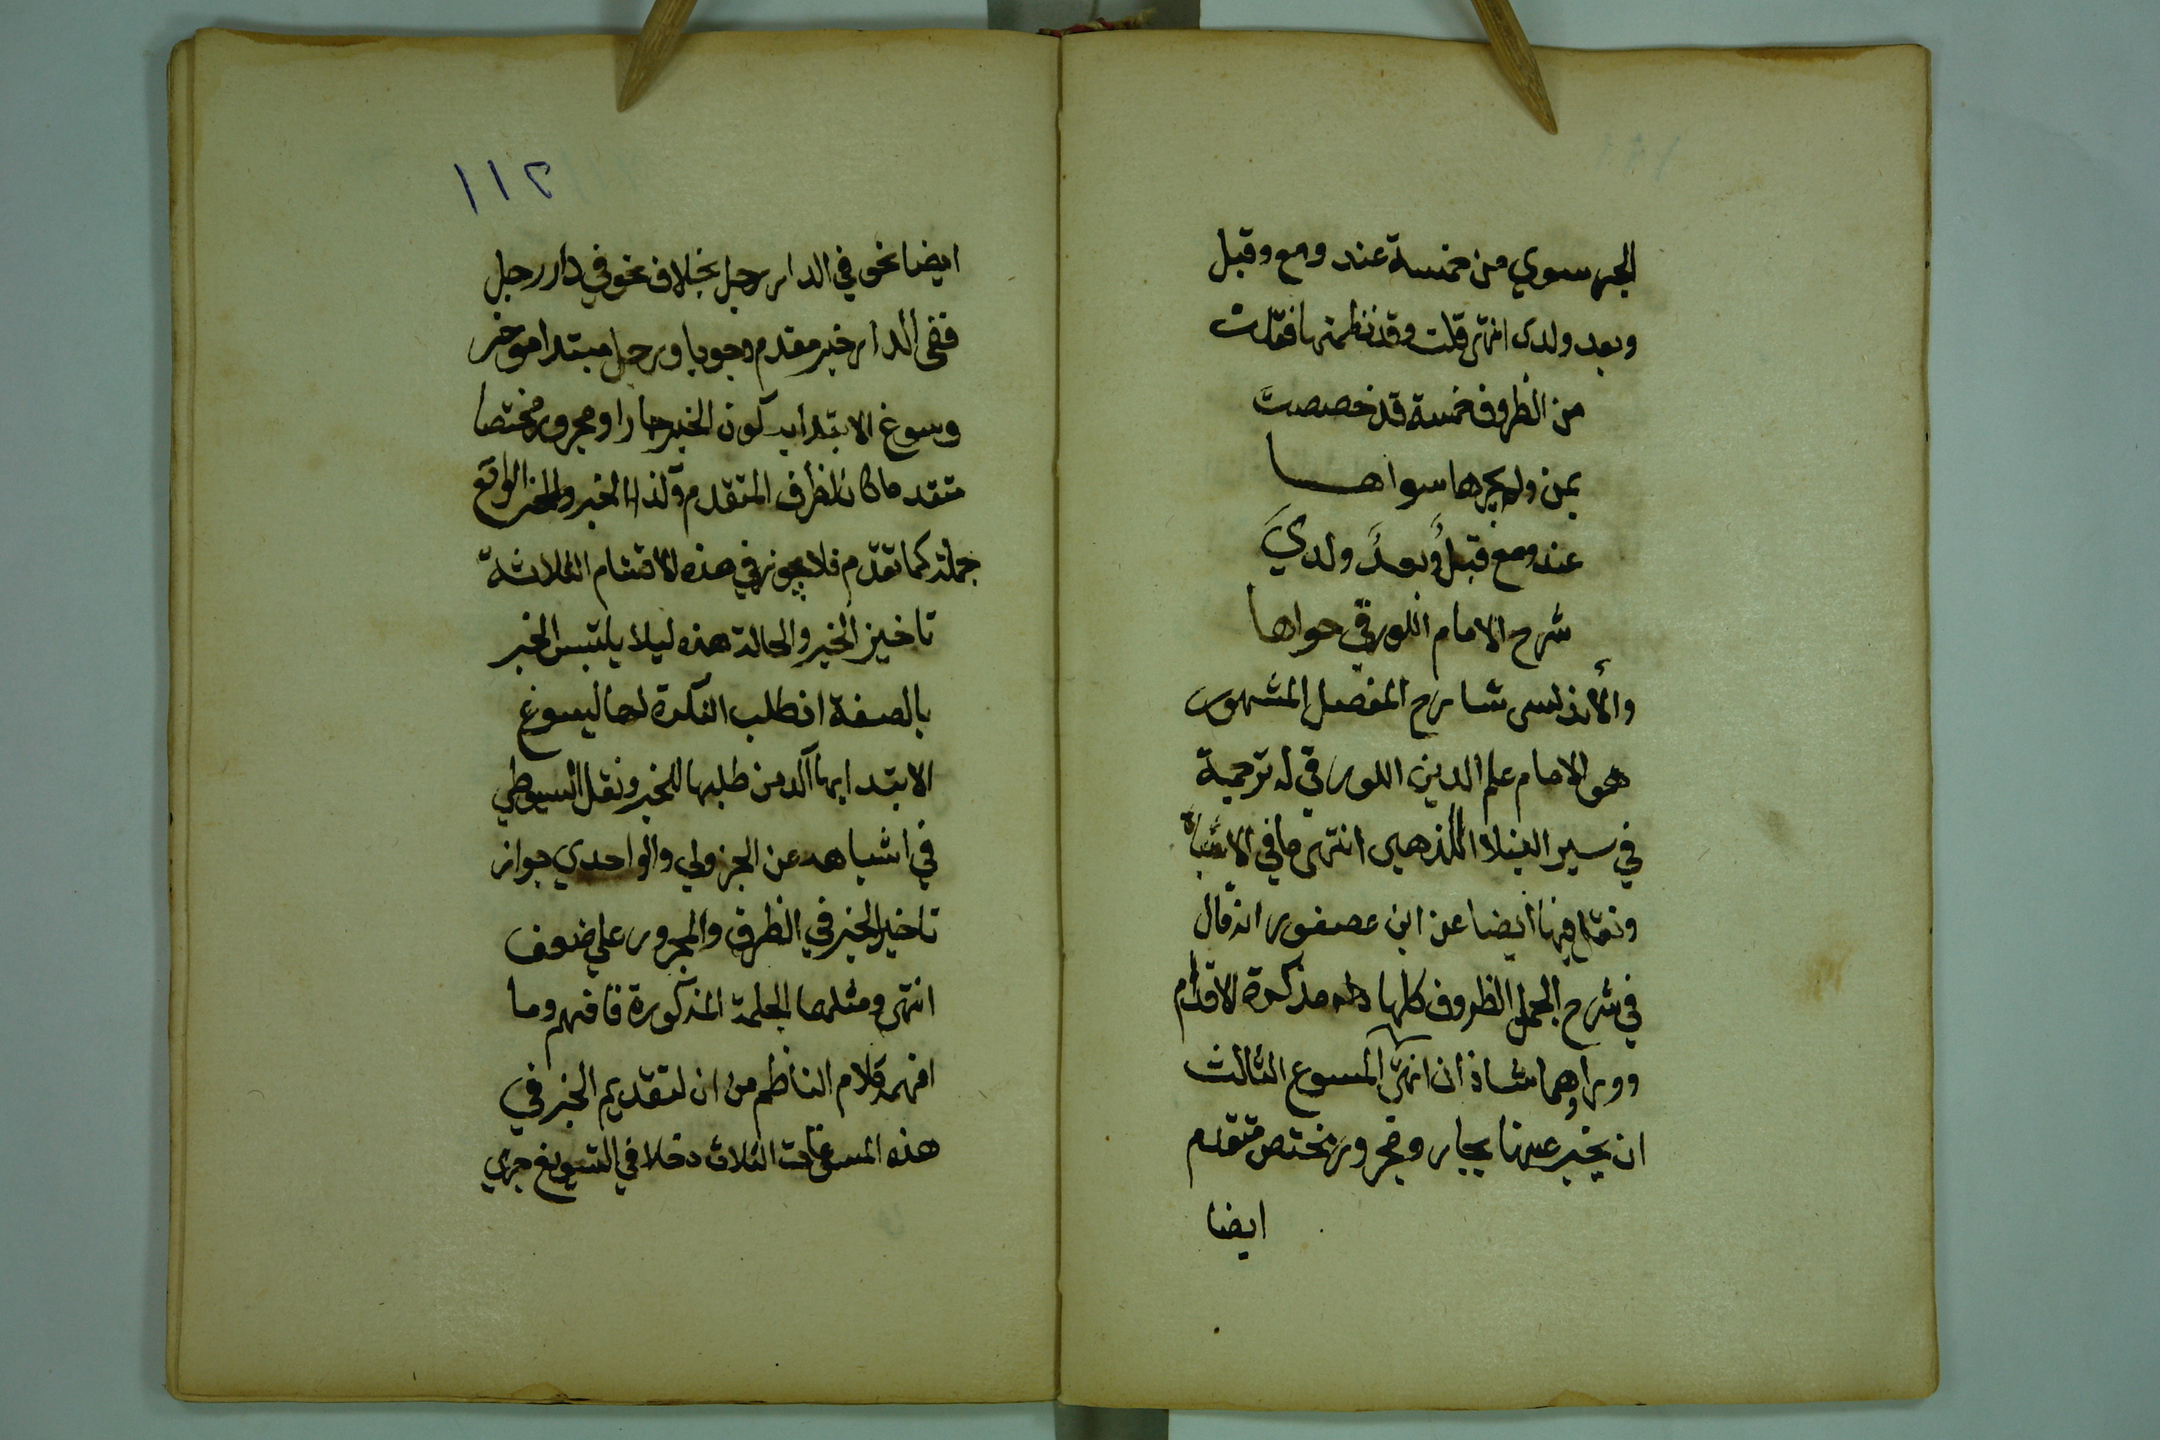 الجر سوي من خمسة عند ومع وقبل
وبعد ولدى انتهى قلت وقد نظمتها فقلت
من الظروف خمسة قد خصصت
بمن ولم يجرها سواها
عند ومع قبلُ وبعدُ ولديَ
شرح الامام اللورقي حواها
والأندلسى شارح المفصل المشهور
هو الامام علم الدين اللورقي له ترجمة
في سير النبلا للذهبى انتهى ما في الاشباه
ونقل فيها ايضا عن ابن عصفور انه قال
في شرح الجمل الظروف كلها مذكرة الا قدام
ووراوهما شاذان انتهى المسوغ الثالث
ان يخبر عنها بجار ومجرور مختص متقدم
ايضا
١١٢
ايضا نحو في الدار رجل بخلاف نحو في دار رجل
ففى الدار خبر مقدم وجوبا ورجل مبتدا موخر
وسوغ الابتدا به كون الخبر جارا ومجرور مختصا
متقدما كالظرف المتقدم وكذا الخبر والمخبر الواقع
جملة كما تقدم فلا يجوز في هذه الاقسام الثلاثة
تاخير الخبر والحالة هذه ليلا يلتبس الخبر
بالصفة اذ طلب النكرة لها ليسوغ
الابتدا بها آكد من طلبها للخبر ونقل السيوطي
في اشباهه عن الجزولي والواحدي جواز
تاخير الخبر في الظرف والمجرور علي ضعف
انتهى ومثلهما الجملة المذكورة فافهم وما
افهمه كلام الناظم من ان لتقديم الخبر في
هذه المسوغات الثلاث دخلا في التسويغ جري